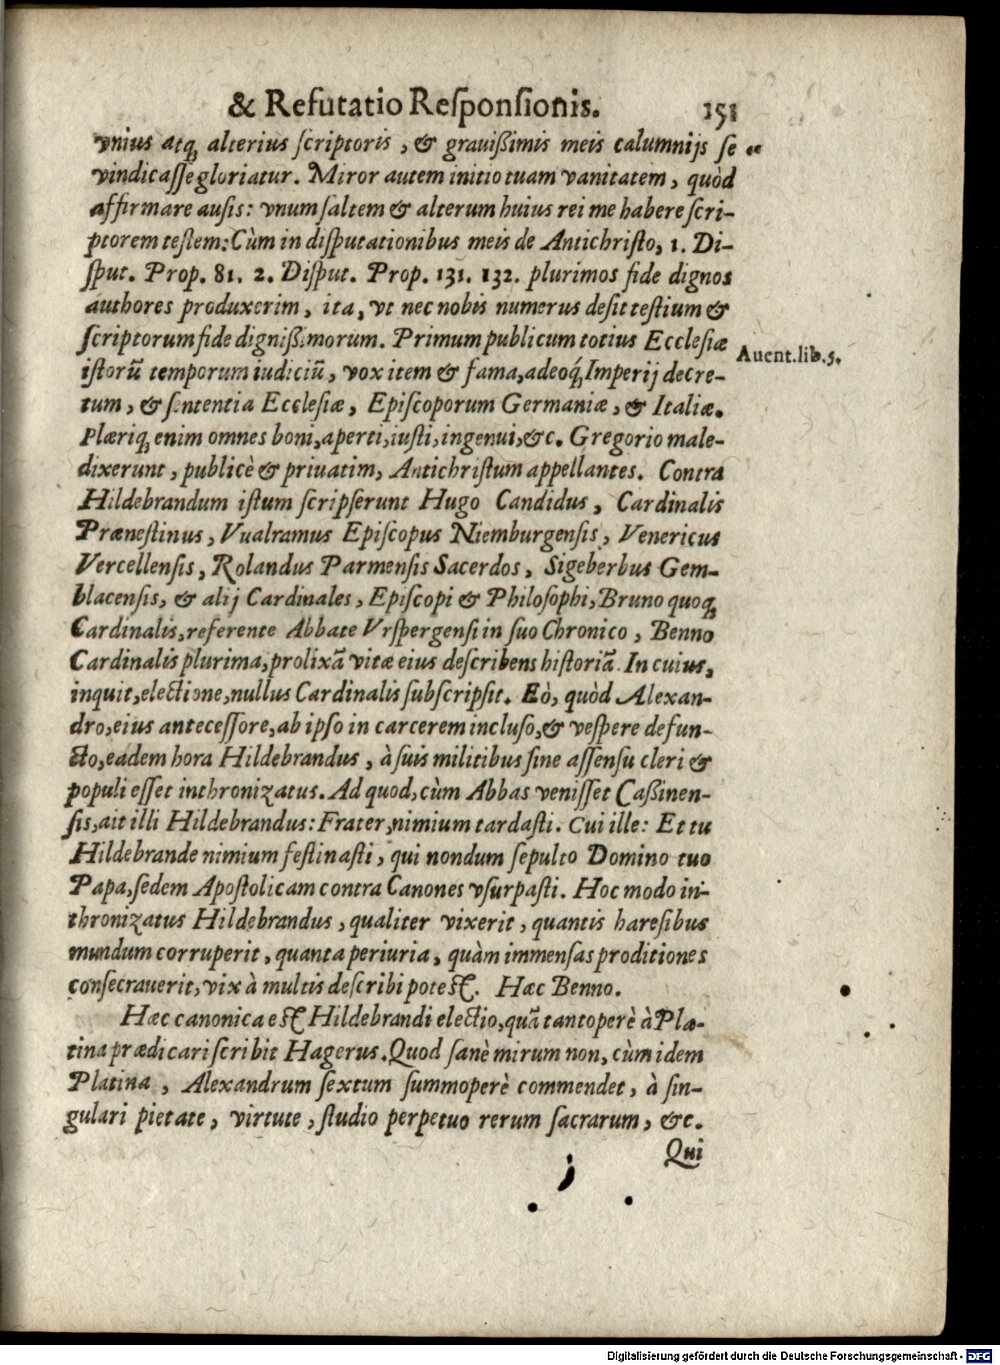 & Refutatio Responsionis. 151
vnius atq; alterius scriptoris, & grauißimis meis calumnijs se „
vindicasse gloriatur. Miror autem initio tuam vanitatem, quòd
affirmare ausis: vnum saltem & alterum huius rei me habere scri-
ptorem testem: Cùm in disputationibus meis de Antichristo, 1. Di-
sput. Prop. 81. 2. Disput. Prop. 131. 132. plurimos fide dignos
authores produxerim, ita, vt nec nobis numerus desit testium &
scriptorum fide dignißimorum. Primum publicum totius Ecclesiæ
Auent. lib. 5.
istorũ temporum iudiciũ, vox item & fama, adeoq́; Imperij decre-
tum, & sententia Ecclesiæ, Episcoporum Germaniæ, & Italiæ.
Plæriq; enim omnes boni, aperti, iusti, ingenui, &c. Gregorio male-
dixerunt, publicè & priuatim, Antichristum appellantes. Contra
Hildebrandum istum scripserunt Hugo Candidus, Cardinalis
Prænestinus, Vualramus Episcopus Niemburgensis, Venericus
Vercellensis, Rolandus Parmensis Sacerdos, Sigeberbus Gem-
blacensis, & alij Cardinales, Episcopi & Philosophi, Bruno quoq;
Cardinalis, referente Abbate Vrspergensi in suo Chronico, Benno
Cardinalis plurima, prolixã vitæ eius describens historiã. In cuius,
inquit, electione, nullus Cardinalis subscripsit. Eò, quòd Alexan-
dro, eius antecessore, ab ipso in carcerem incluso, & vespere defun-
cto, eadem hora Hildebrandus, à suis militibus sine assensu cleri &
populi esset inthronizatus. Ad quod, cùm Abbas venisset Caßinen-
sis, ait illi Hildebrandus: Frater, nimium tardasti. Cui ille: Et tu
Hildebrande nimium festinasti, qui nondum sepulto Domino tuo
Papa, sedem Apostolicam contra Canones vsurpasti. Hoc modo in-
thronizatus Hildebrandus, qualiter vixerit, quantis hæresibus
mundum corruperit, quanta periuria, quàm immensas proditiones
consecrauerit, vix à multis describi potest. Hæc Benno.
Hæc canonica est Hildebrandi electio, quã tantoperè à Pla-
tina prædicari scribit Hagerus. Quod sanè mirum non, cùm idem
Platina, Alexandrum sextum summoperè commendet, à sin-
gulari pietate, virtute, studio perpetuo rerum sacrarum, &c.
Qui
Digitalisierung gefördert durch die Deutsche Forschungsgemeinschaft - DFG